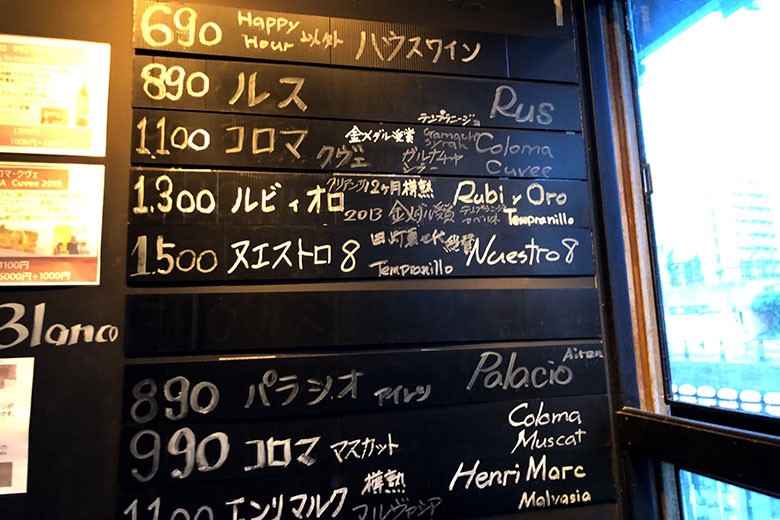 690 Happy Hour 以外 ハウスワイン
890 ルス テンプラニージョ Rus
1100 コロマ クヴェ 金メダル受賞 Garnacha Syrah ガルナチャ シラー Coloma Cuvee
1.300 ルビィオロ クリアンサ12ヶ月樽熟 2013 金メダル受賞 Rubi y Oro Tempranillo
1.500 ヌエストロ8 Tempranillo Nuestro 8
Blanco
890 パラシオ アイレン Palacio Airen
990 コロマ マスカット Coloma Muscat
1100 エンリマルク 樽熟 マルヴァシア Henri Marc Malvasia
コロマ・クヴェ
A Cuvee 2013
1100円
5000円+1000円